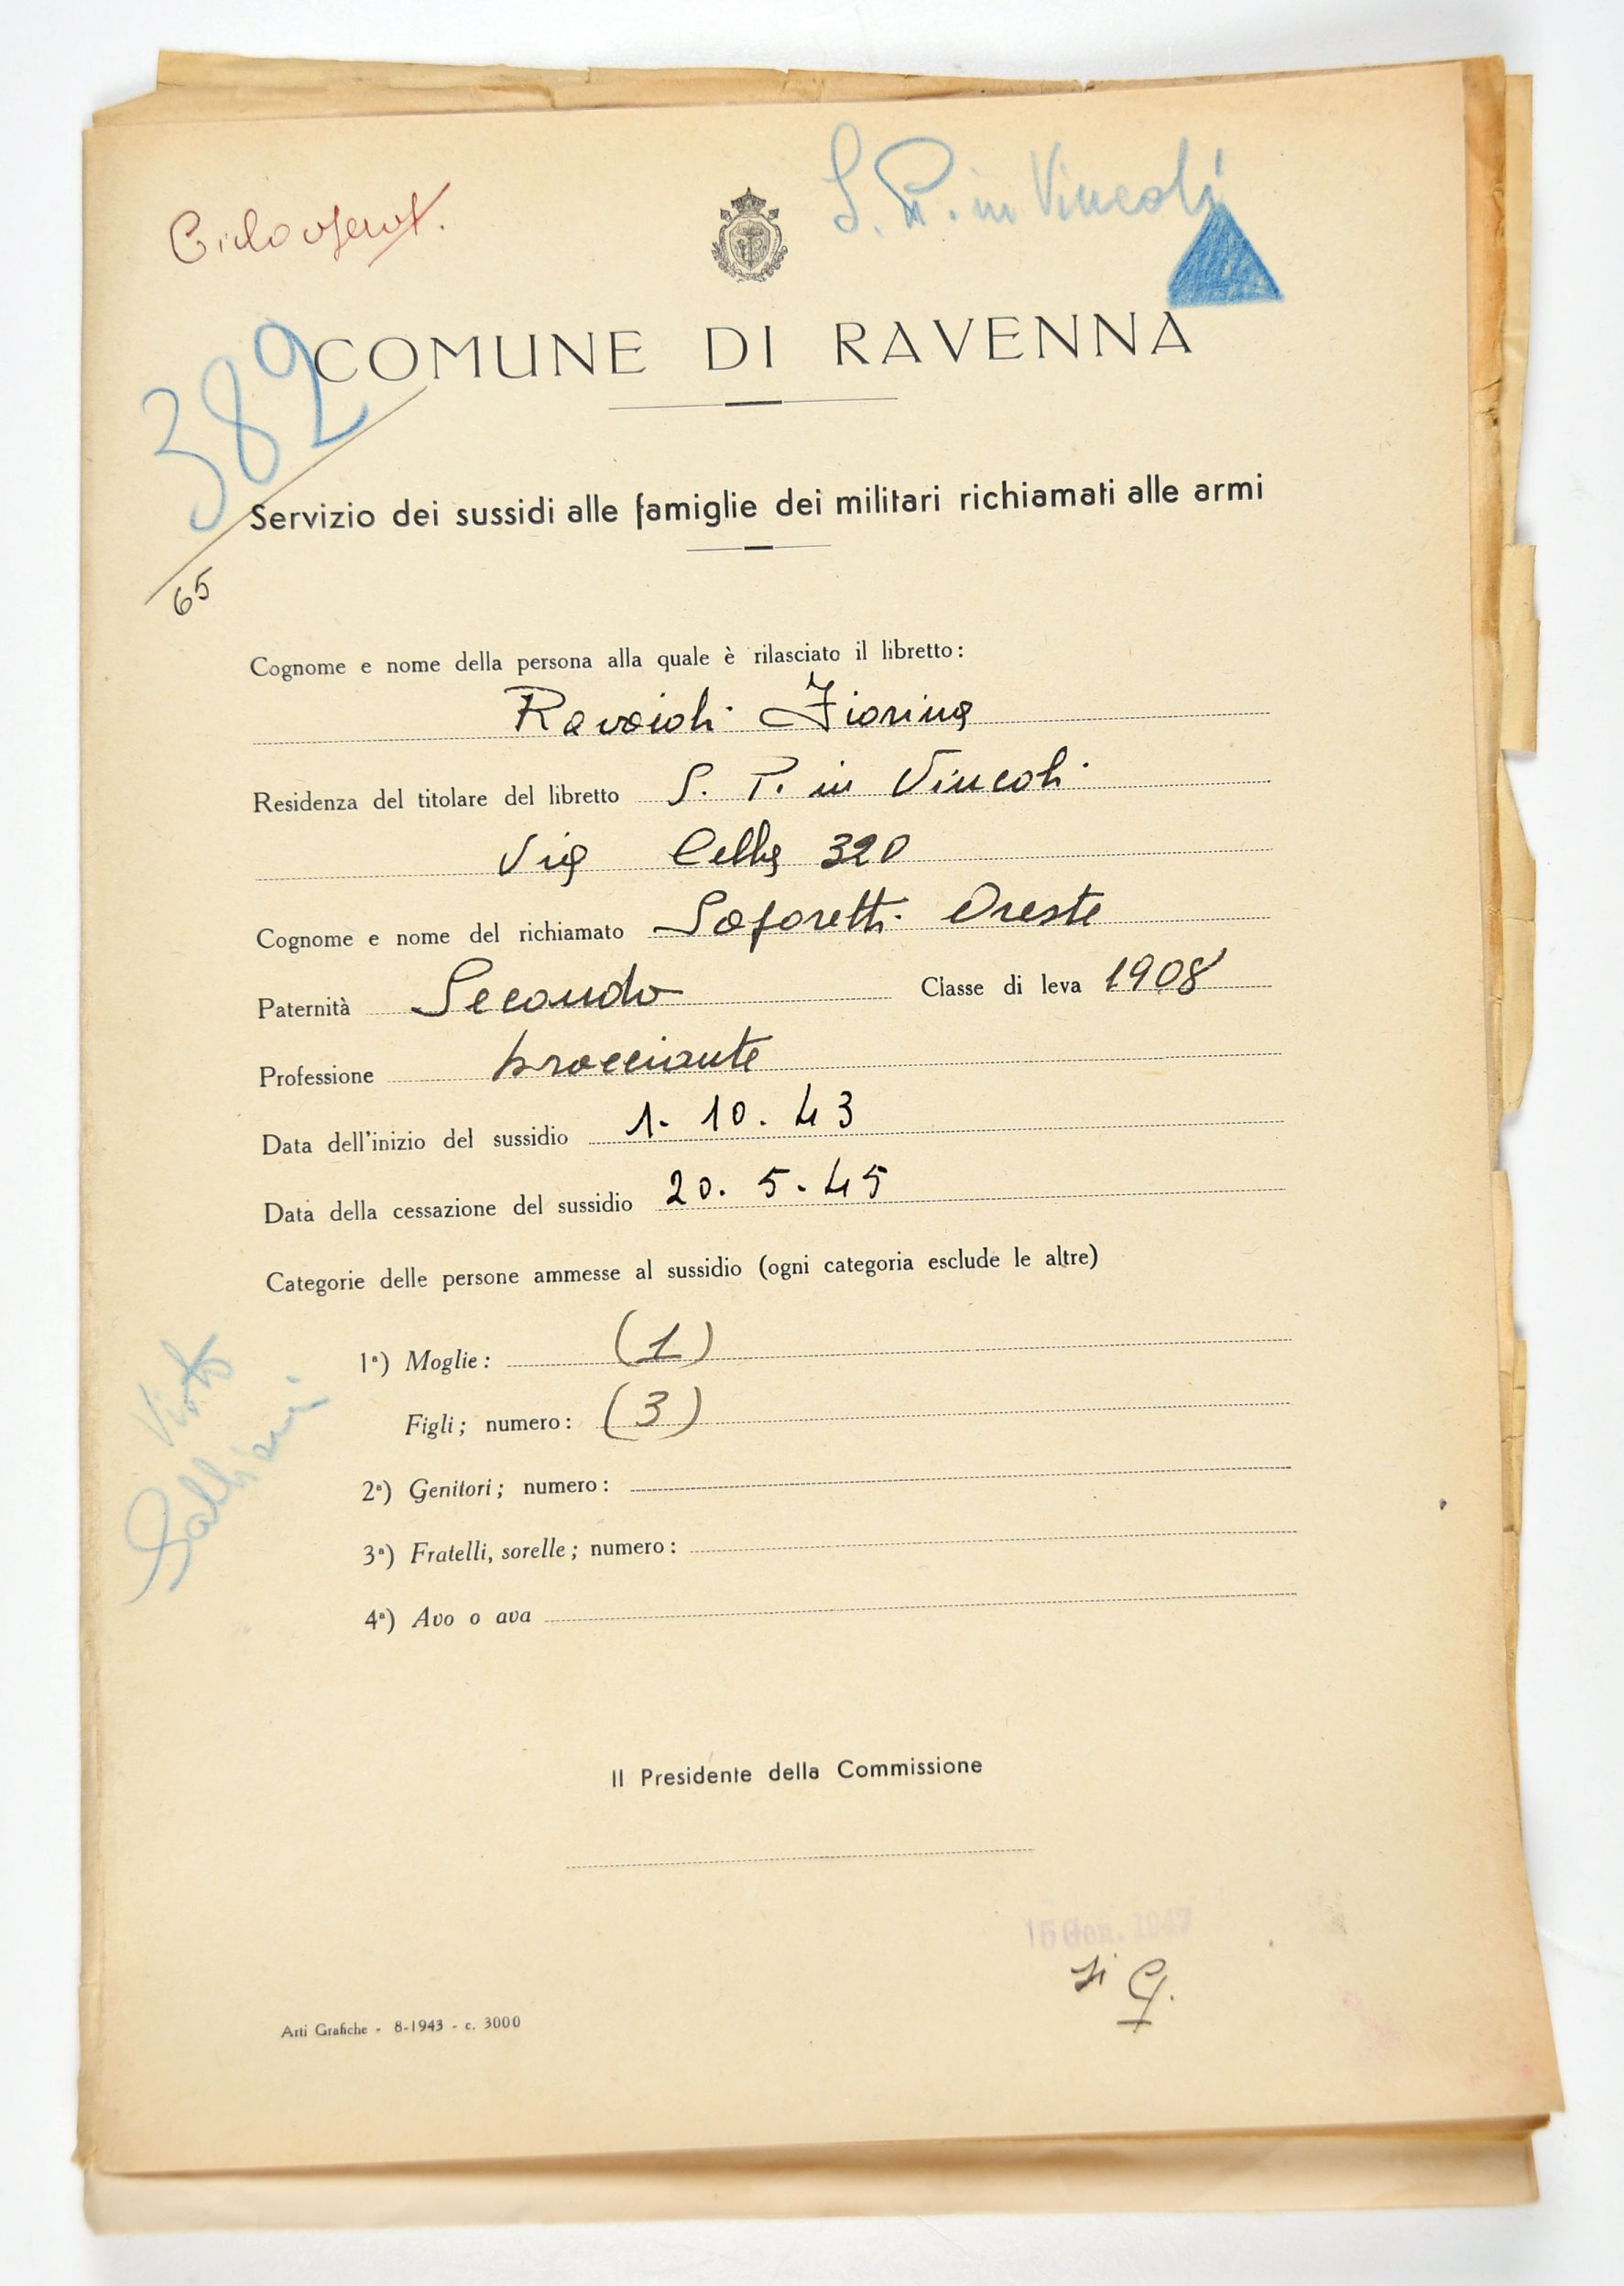 S. P. in Vincoli
COMUNE DI RAVENNA
382
65
Servizio dei sussidi alle famiglie dei militari richiamati alle armi
Cognome e nome della persona alla quale è rilasciato il libretto:
Ravaioli Fiorina
Residenza del titolare del libretto S. P. in Vincoli
Via Cella 320
Cognome e nome del richiamato Saforetti Oreste
Paternità Secondo Classe di leva 1908
Professione bracciante
Data dell'inizio del sussidio 1. 10. 43
Data della cessazione del sussidio 20. 5. 45
Categorie delle persone ammesse al sussidio (ogni categoria esclude le altre)
1ª) Moglie: (1)
Figli; numero: (3)
2ª) Genitori; numero:
3ª) Fratelli, sorelle; numero:
4ª) Avo o ava
Visto
Il Presidente della Commissione
Arti Grafiche - 8-1943 - c. 3000